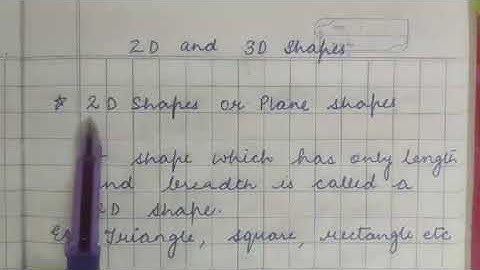 2D and 3D Shapes
* 2D Shapes or Plane shapes
shape which has only length
and breadth is called a
2D shape.
Triangle, square, rectangle etc